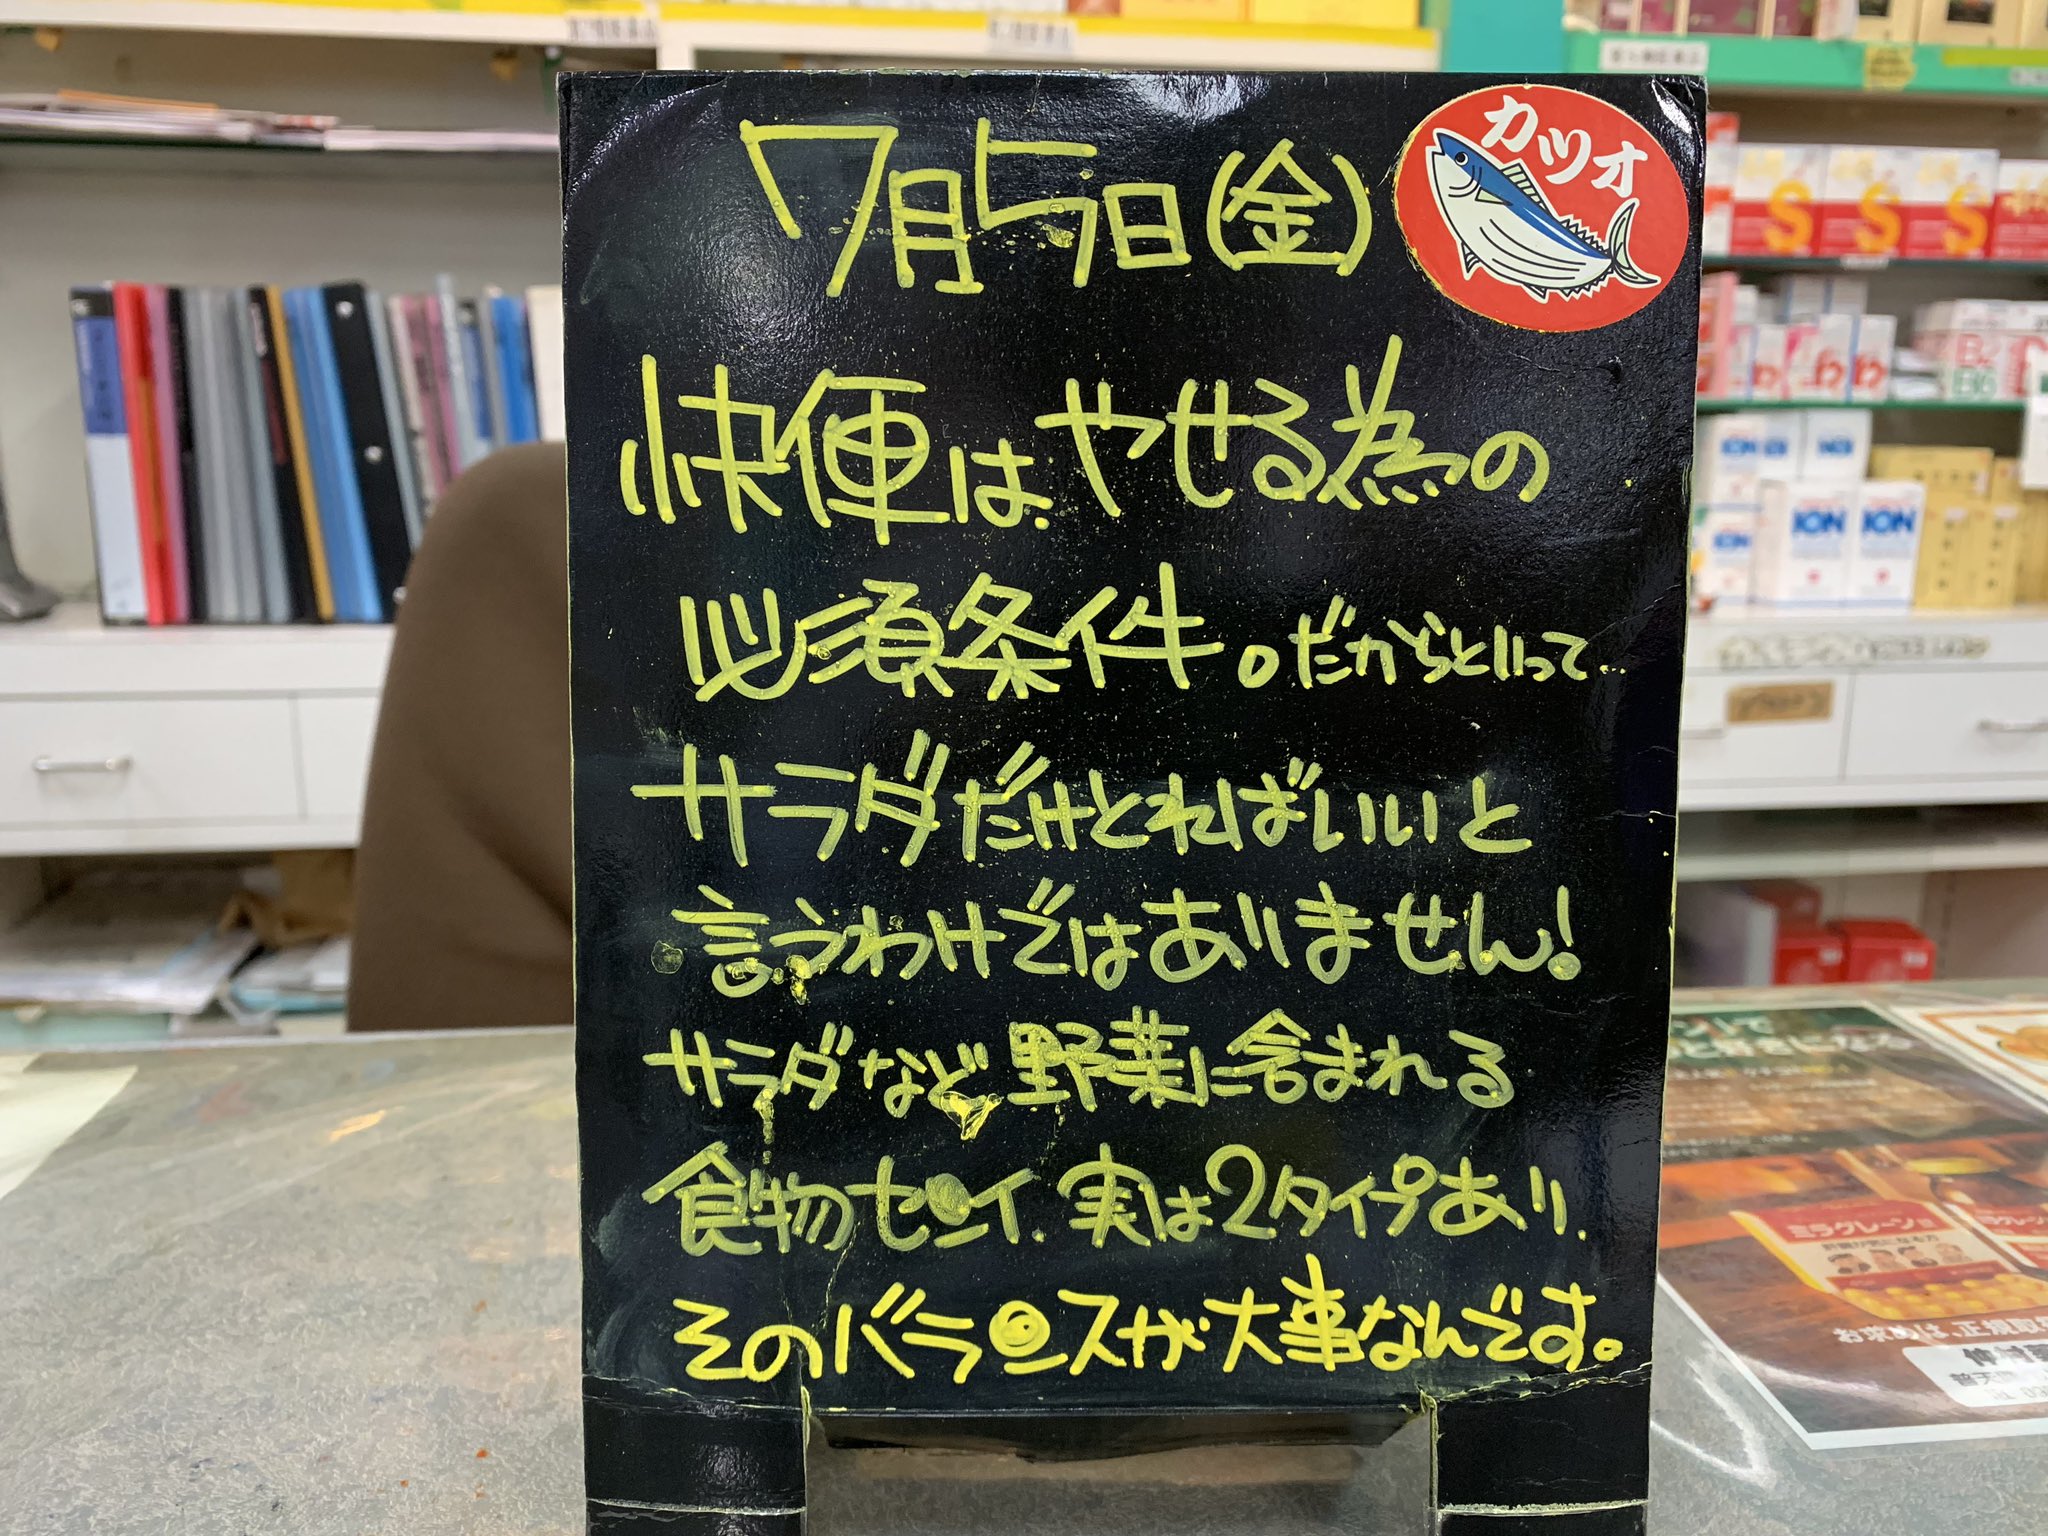 7月5日(金)
カツオ
快便は やせる為の
必須条件。だからといって…
サラダだけとればいいと
言うわけではありません!
サラダなど野菜に含まれる
食物センイ.実は2タイプあり.
そのバランスが大事なんです。
S
S
S
B2
B6
ION
ION
ION
ION
ミラクレーン
お求めは、正規取